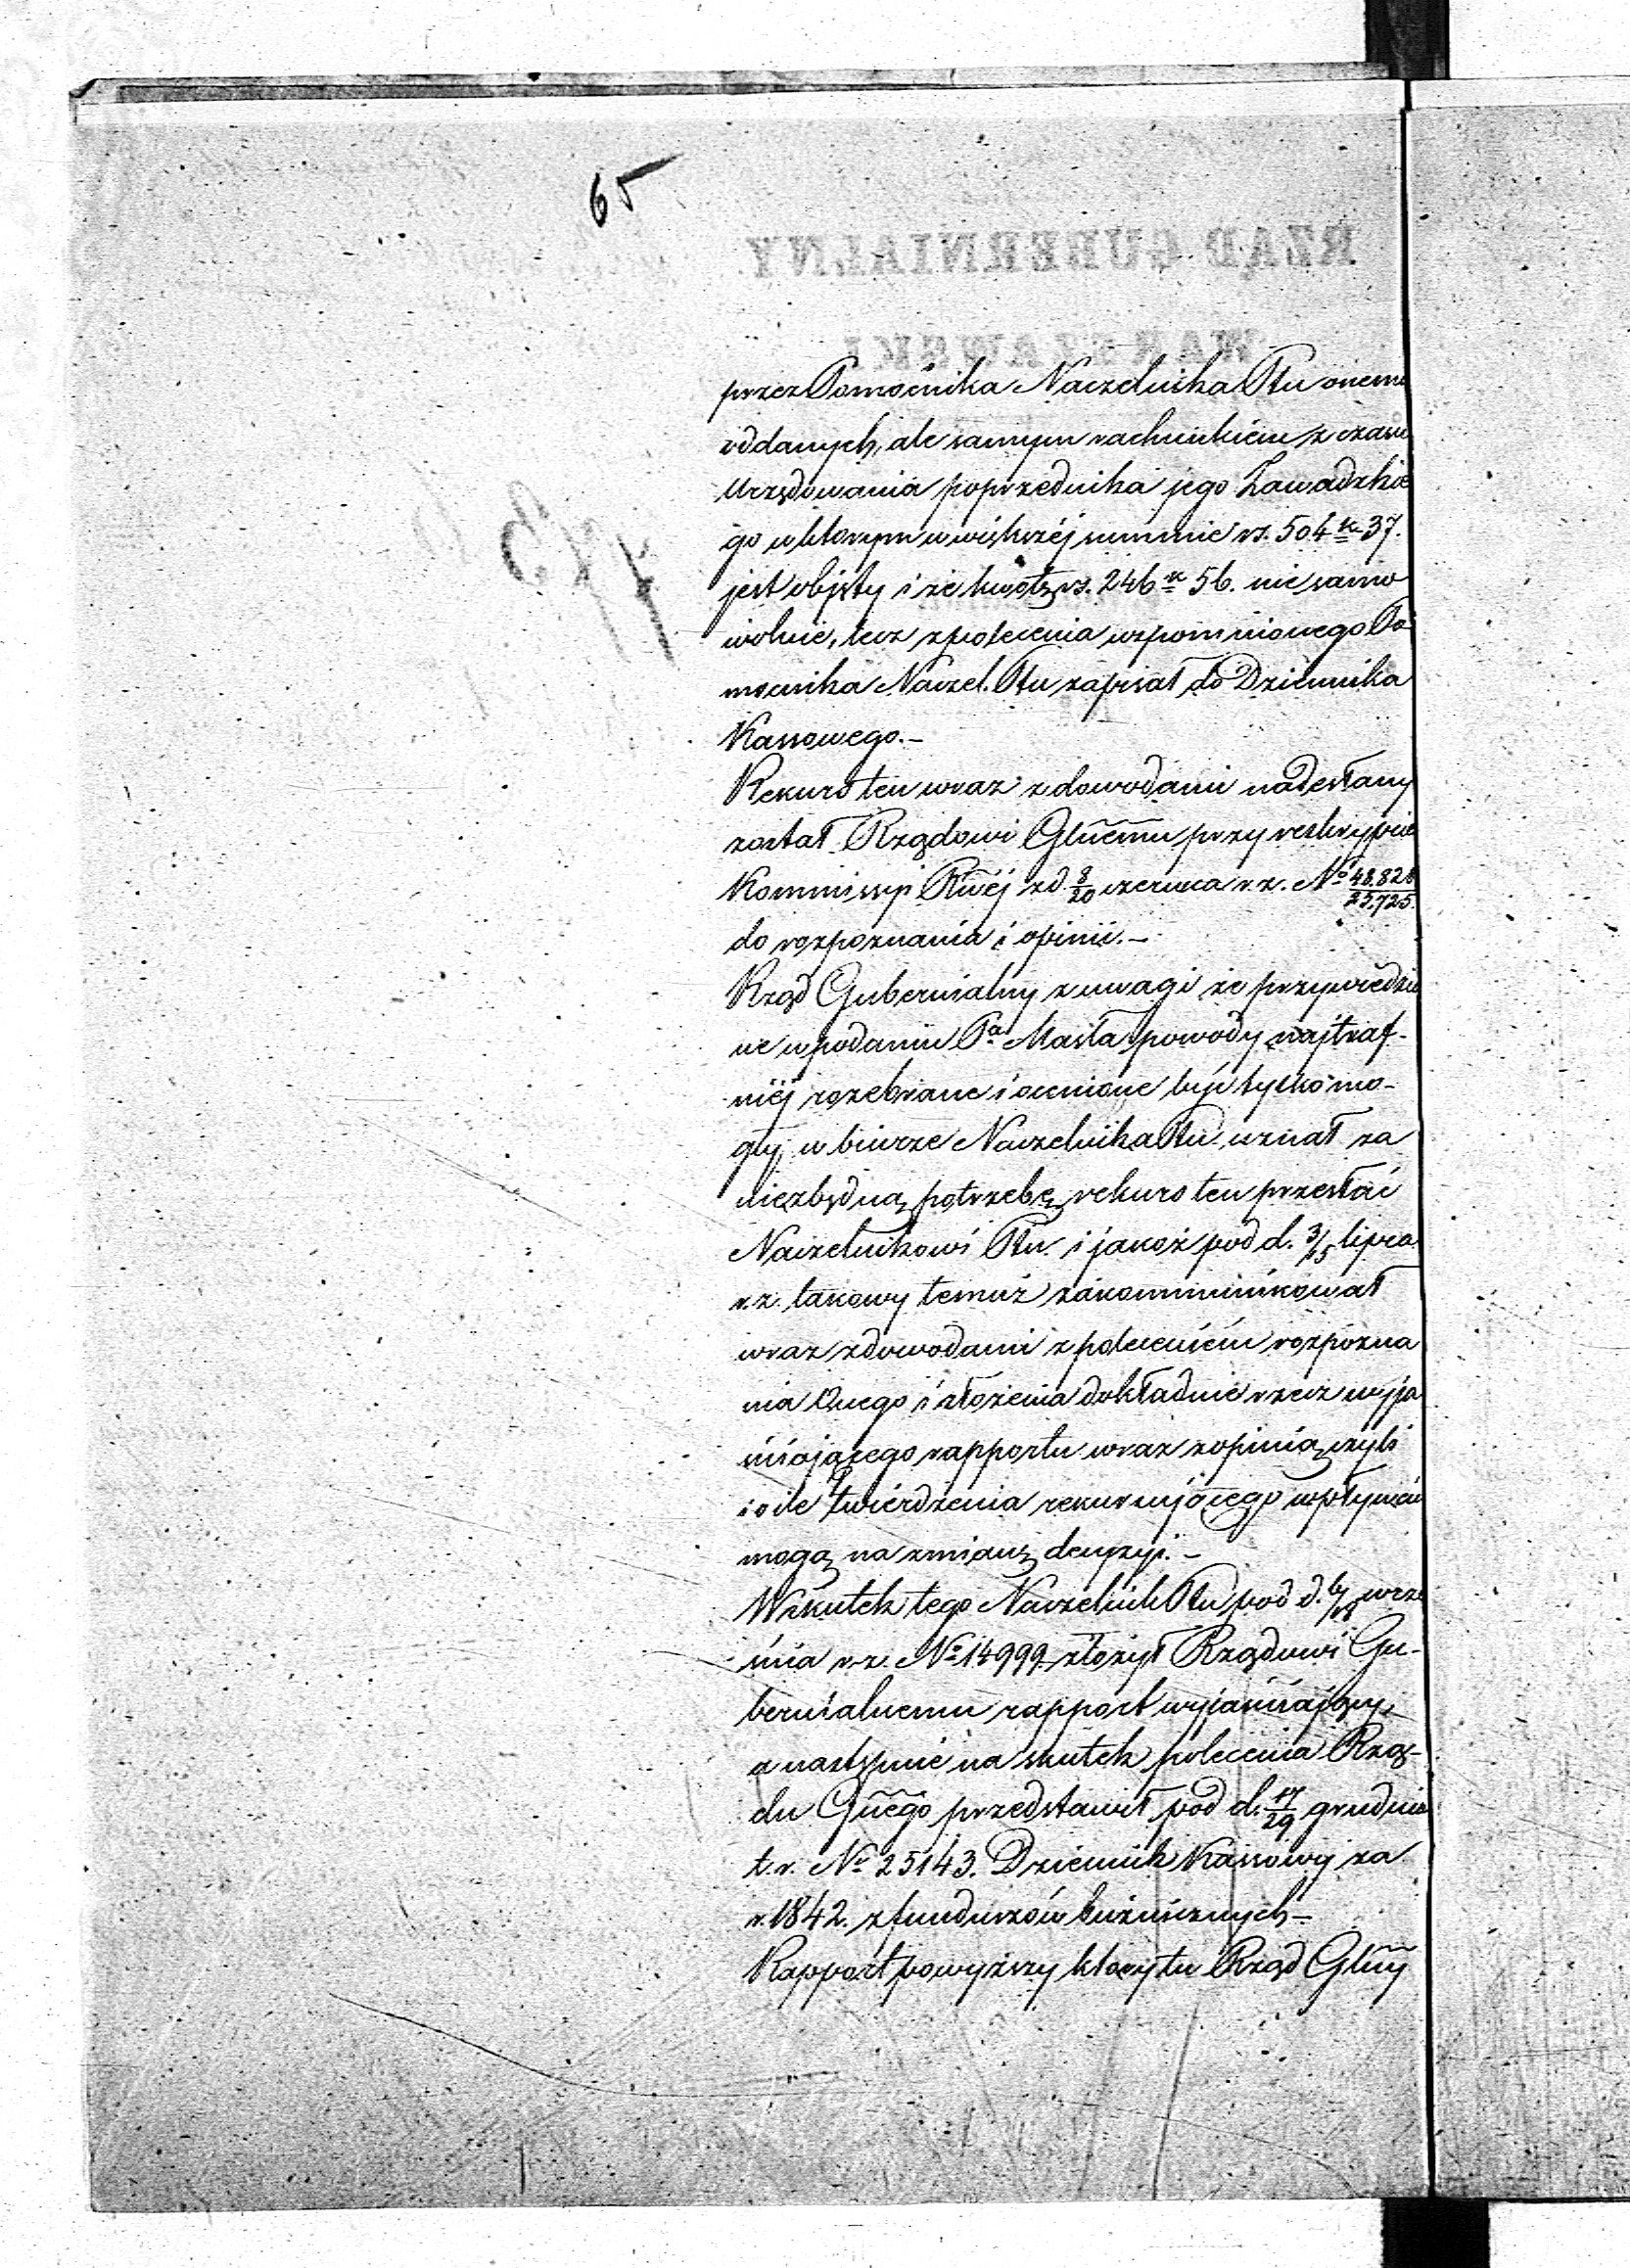 65
przez Pomocnika Naczelnika Ptu onemu
oddanych, ale samym rachunkiem z czasu
Urzędowania poprzednika jego Zawadzkie
go w którym w większéj summie rs. 504 k 37.
jest objęty i że kwotę rs. 246 k 56. nie samo
wolnie, lecz z polecenia wspomnionego Po
mocnika Naczel. Ptu zapisał do Dziennika
Kassowego.-
Rekurs ten wraz z dowodami nadesłany
został Rządowi Glnemu przy reskrypcie
Kommissyi Rwéj z d. 8/20 czerwca r. z. No 48,828/25,725.
do rozpoznania i opinii.-
Rząd Gubernialny z uwagi że przywiedzio
ne w podaniu Pa Masła powody najtraf-
niéj rozebrane i ocenione być tylko mo-
gły, w biurze Naczelnika Ptu, uznał za
niezbędną potrzebę rekurs ten przesłać
Naczelnikowi Ptu. i jakoż pod d. 3/15 lipca
r. z. takowy temuż zakommunikował
wraz z dowodami z poleceniem rozpozna
nia Onego i złożenia dokładnie rzecz wyja
śniającego rapportu wraz z opinią czyli
i o ile twierdzenia rekurrującego wpłynąć
mogą na zmianę decyzyi.-
Wskutek tego Naczelnik Ptu pod d. 6/18 wrze
śnia r. z. No 14999 złożył Rządowi Gu-
bernialnemu rapport wyjaśniający,
a następnie na skutek polecenia Rzą-
du Gnego przedstawił pod d. 17/29 grudnia
t. r. No 25143. Dziennik Kassowy za
r. 1842. z funduszów bużnicznych-
Rapport powyższy który tu Rząd Glny